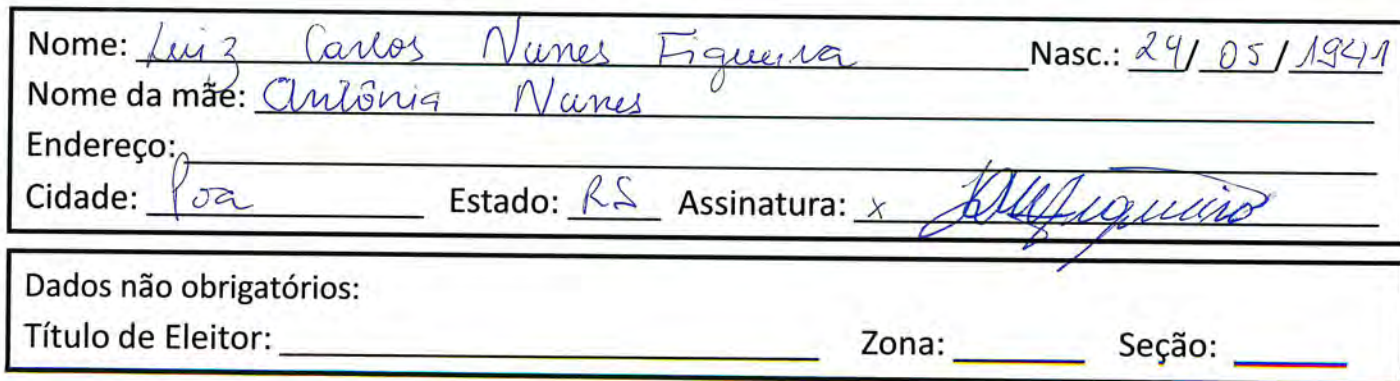 Nome: Luiz Carlos Nunes Figueira Nasc.: 24/05/1941
Nome da mãe: Antônia Nunes
Endereço:
Cidade: Poa Estado: RS Assinatura: x
Dados não obrigatórios:
Título de Eleitor: Zona: Seção: